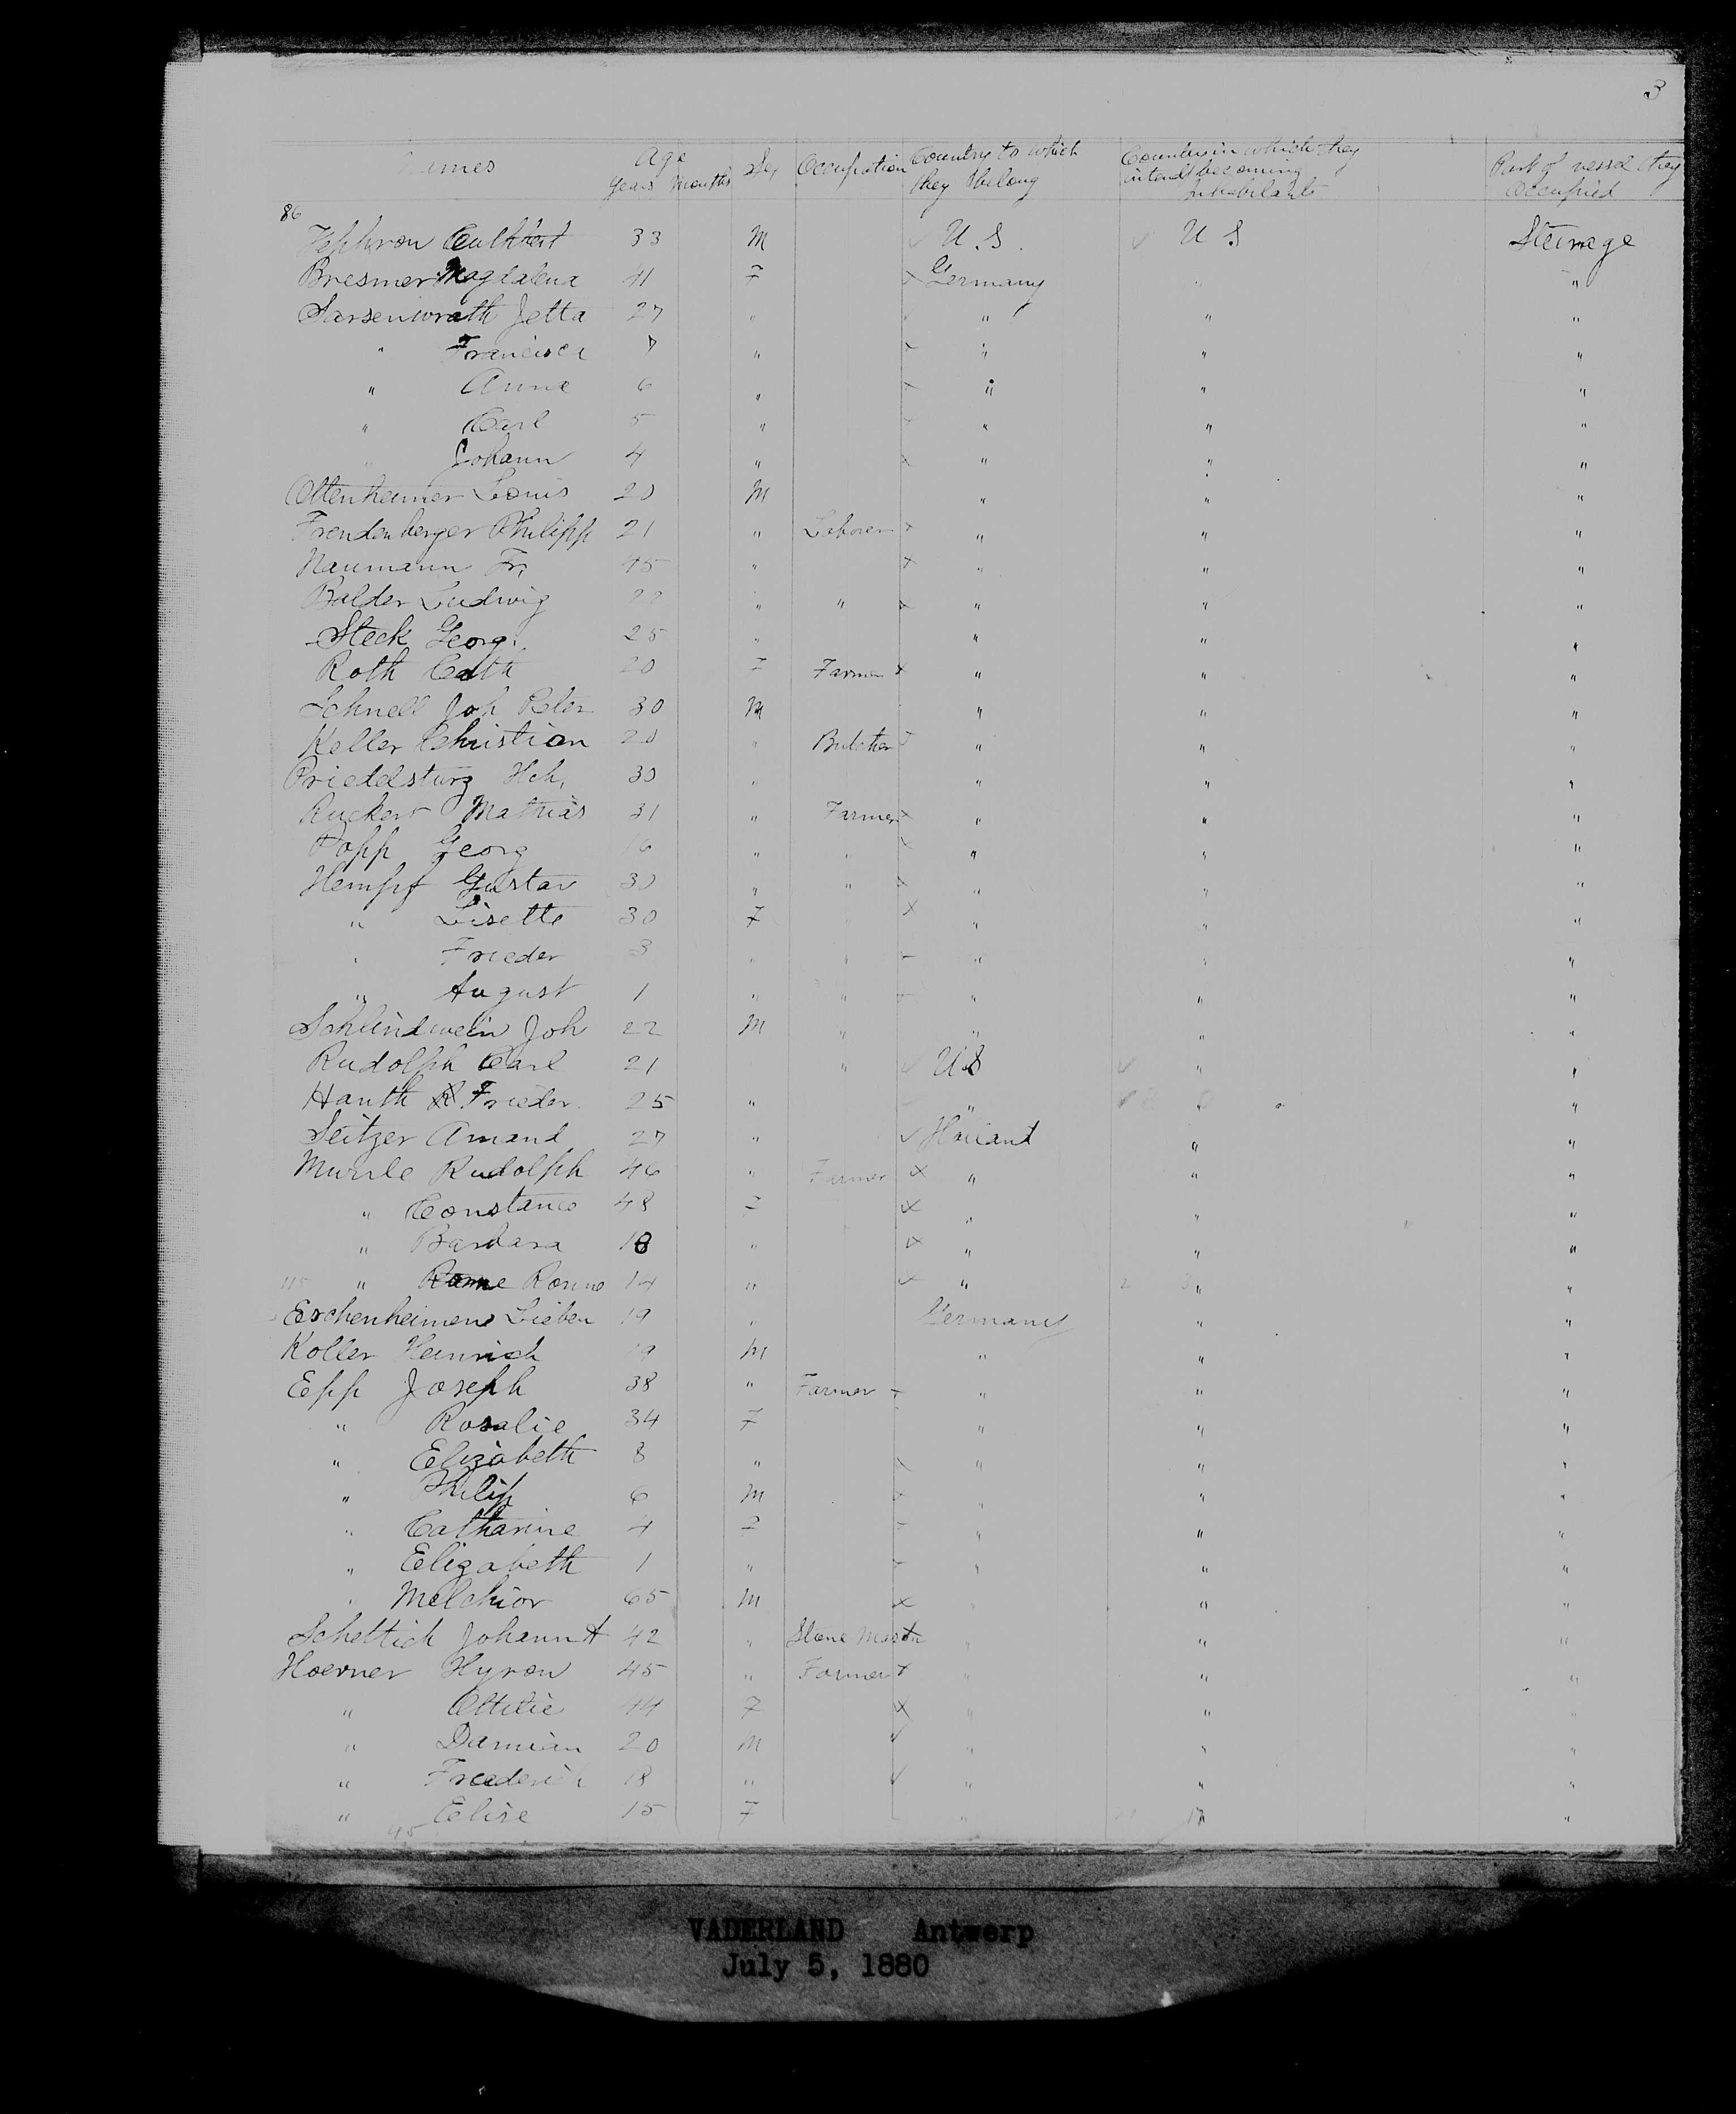 3
Names Age Sex Occupation Country to which Country in which they Part of vessel they
Years Months they belong intend becoming Occupied
Inhabitants
86
Cuthbert 33 M U.S. U S Steerage
Bresmer Magdalena 41 F Germany "
Sarsenwrath Jetta 27 " " " "
" Francisca 7 " " " "
" Anne 6 " " " "
" Carl 5 " " " "
" Johann 4 " " " "
Ottenheimer Louis 20 M " " "
Freudenberger Philipp 21 " Laborer " " "
Naumann Fr, 45 " " " "
Balder Ludwig 22 " " " " "
Steck Georg. 25 " " " "
Roth Cath 20 F Farmer " " "
Schnell Joh Peter 30 M " " "
Keller Christian 20 " Butcher " " "
Priedelsturz Hch, 30 " " " "
Ruckert Mathias 31 " Farmer " " "
Popp Georg 16 " " " " "
Hempf Gustav 30 " " " " "
" Lisette 30 F " " "
" Frieder 3 " " " " "
" August 1 " " " " "
Schlindwein Joh 22 M " " " "
Rudolph Carl 21 " U.S " "
Hauth R. Frieder. 25 " " " "
Seitzer Amand 27 " Holland " "
Murrle Rudolph 46 " Farmer " " "
" Constance 48 F " " "
" Barbara 18 " " " "
115 " Rosine 14 " " " "
Eschenheimer Lieben 19 " Germany " "
Koller Heinrich 19 M " " "
Epp Joseph 38 " Farmer " " "
" Rosalie 34 F " " "
" Elizabeth 8 " " " "
" Philip 6 M " " "
" Catharine 4 F " " "
" Elizabeth 1 " " " "
" Melchior 65 M " " "
Schettich Johann A 42 " Stone Mason " " "
Hoerner Hyron 45 " Farmer " " "
" Ottilie 44 F " " "
" Damian 20 M " " "
" Frederich 18 " " " "
" Elise 15 F " " "
45
VADERLAND Antwerp
July 5, 1880